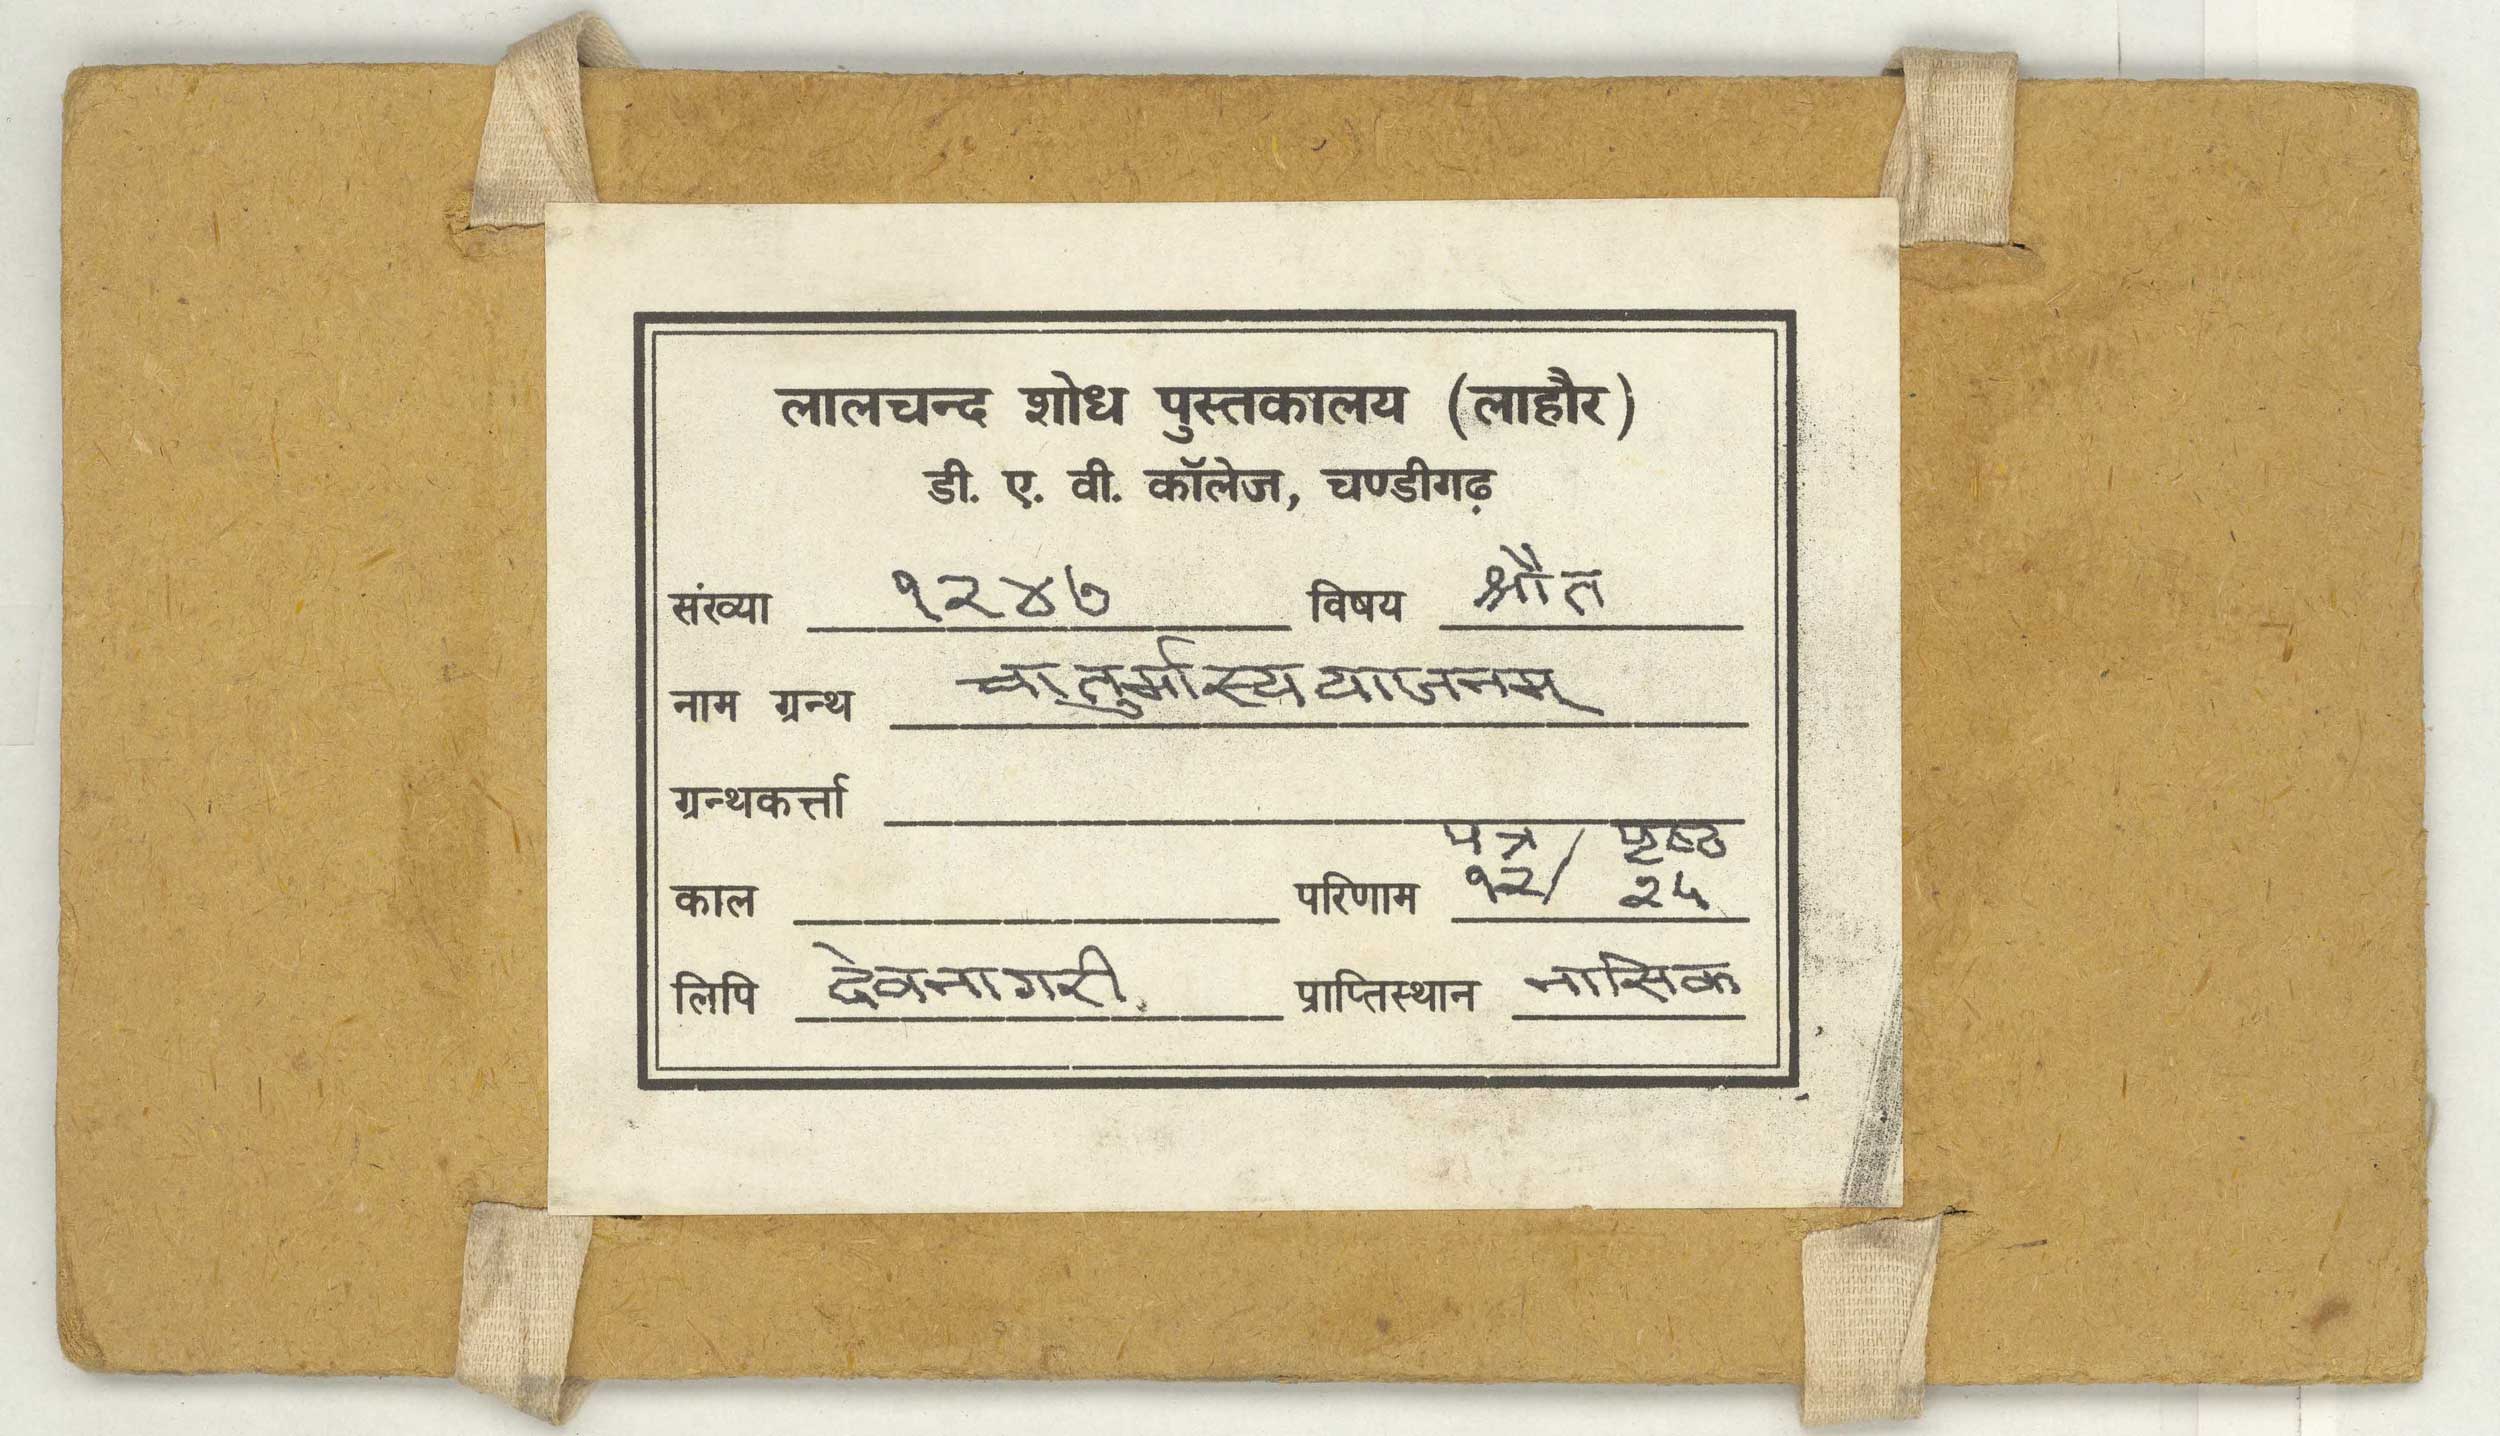 लालचन्द शोध पुस्तकालय (लाहौर)
डी. ए. वी. कॉलेज, चण्डीगढ़
संख्या १२४७ विषय श्रौत
नाम ग्रन्थ चातुर्मास्य याजनम्
ग्रन्थकर्त्ता
पत्र / पृष्ठ
काल परिणाम १२/ २५
लिपि देवनागरी प्राप्तिस्थान नासिक